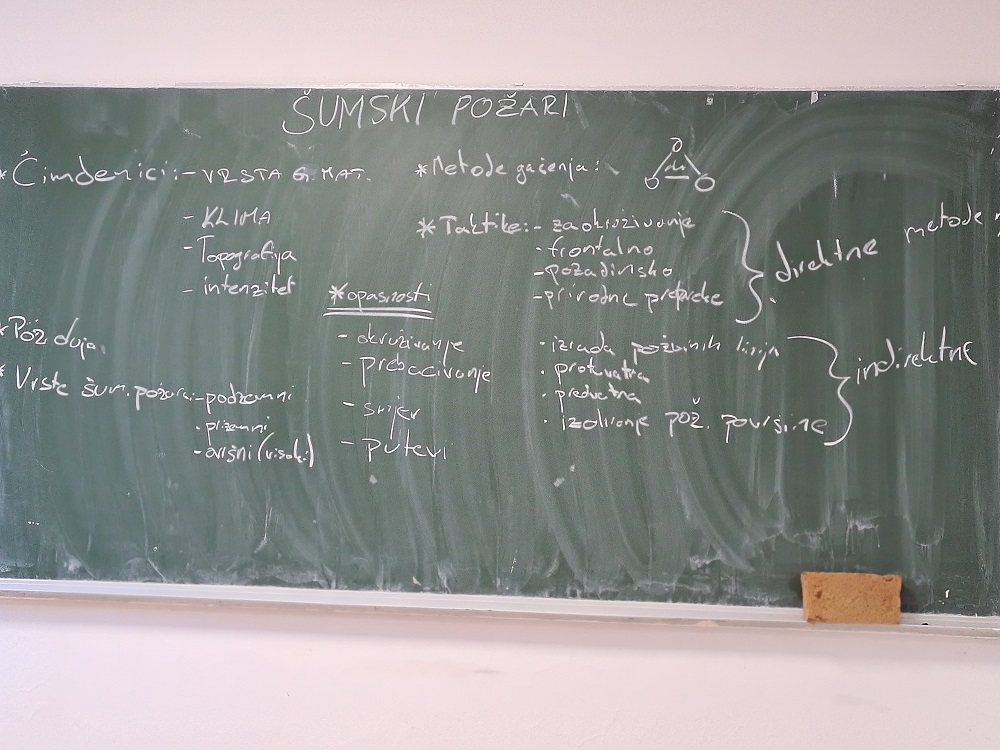 ŠUMSKI POŽARI
* Čimbenici: - VRSTA G. MAT.
- KLIMA
- Topografija
- intenzitet
* Vrste šum. požara: - podzemni
- prizemni
- ovršni (visoki)
* opasnosti
- okruživanje
- prebacivanje
- smjer
- putevi
* Metode gašenja:
* Taktike: - zaokruživanje
- frontalno
- pozadinsko
- prirodne prepreke
} direktne metode
• izrada požarnih linija
• protuvatra
• predvatra
• izoliranje pož. površine
} indirektne